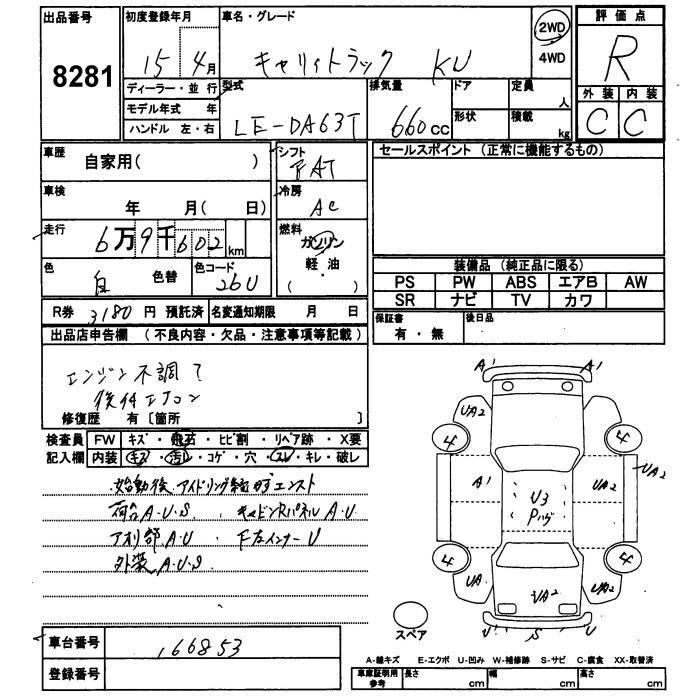 出品番号
8281
初度登録年月
15 4月
車名・グレード
キャリィトラック KU
2WD
4WD
評価点
R
外装 内装
C C
ディーラー・並行
モデル年式 年
ハンドル 左・右
型式
LE-DA63T
排気量
660cc
ドア
形状
定員
人
積載
kg
車歴
自家用( )
シフト
FAT
セールスポイント (正常に機能するもの)
車検
年 月( 日)
冷房
AC
走行
6万9千602km
燃料
ガソリン
軽・油
( )
色
白 色替
色コード
26U
装備品 (純正品に限る)
PS PW ABS エアB AW
SR ナビ TV カワ
R券 3180円 預託済 名変通知期限 月 日
保証書
有・無
後日品
出品店申告欄 (不良内容・欠品・注意事項等記載)
エンジン不調?
後付エアコン
修復歴 有〔箇所 〕
検査員 FW キズ・飛石・ヒビ割・リペア跡・X要
記入欄 内装 キズ・汚レ・コゲ・穴・スレ・キレ・破レ
始動後アイドリング エンスト
荷台A.U.S
キャビンRパネルA.U
アオリ部A.U
下左インナーU
外装A.U.S
A1 A1
UA2
4 4
A1 U3 UA2 UA2
Pハゲ
4 4
UA UA2 UA2
U S U
スペア
車台番号 166853
登録番号
A-線キズ E-エクボ U-凹み W-補修跡 S-サビ C-腐食 XX-取替済
車庫証明用
参考
長さ cm 幅 cm 高さ cm